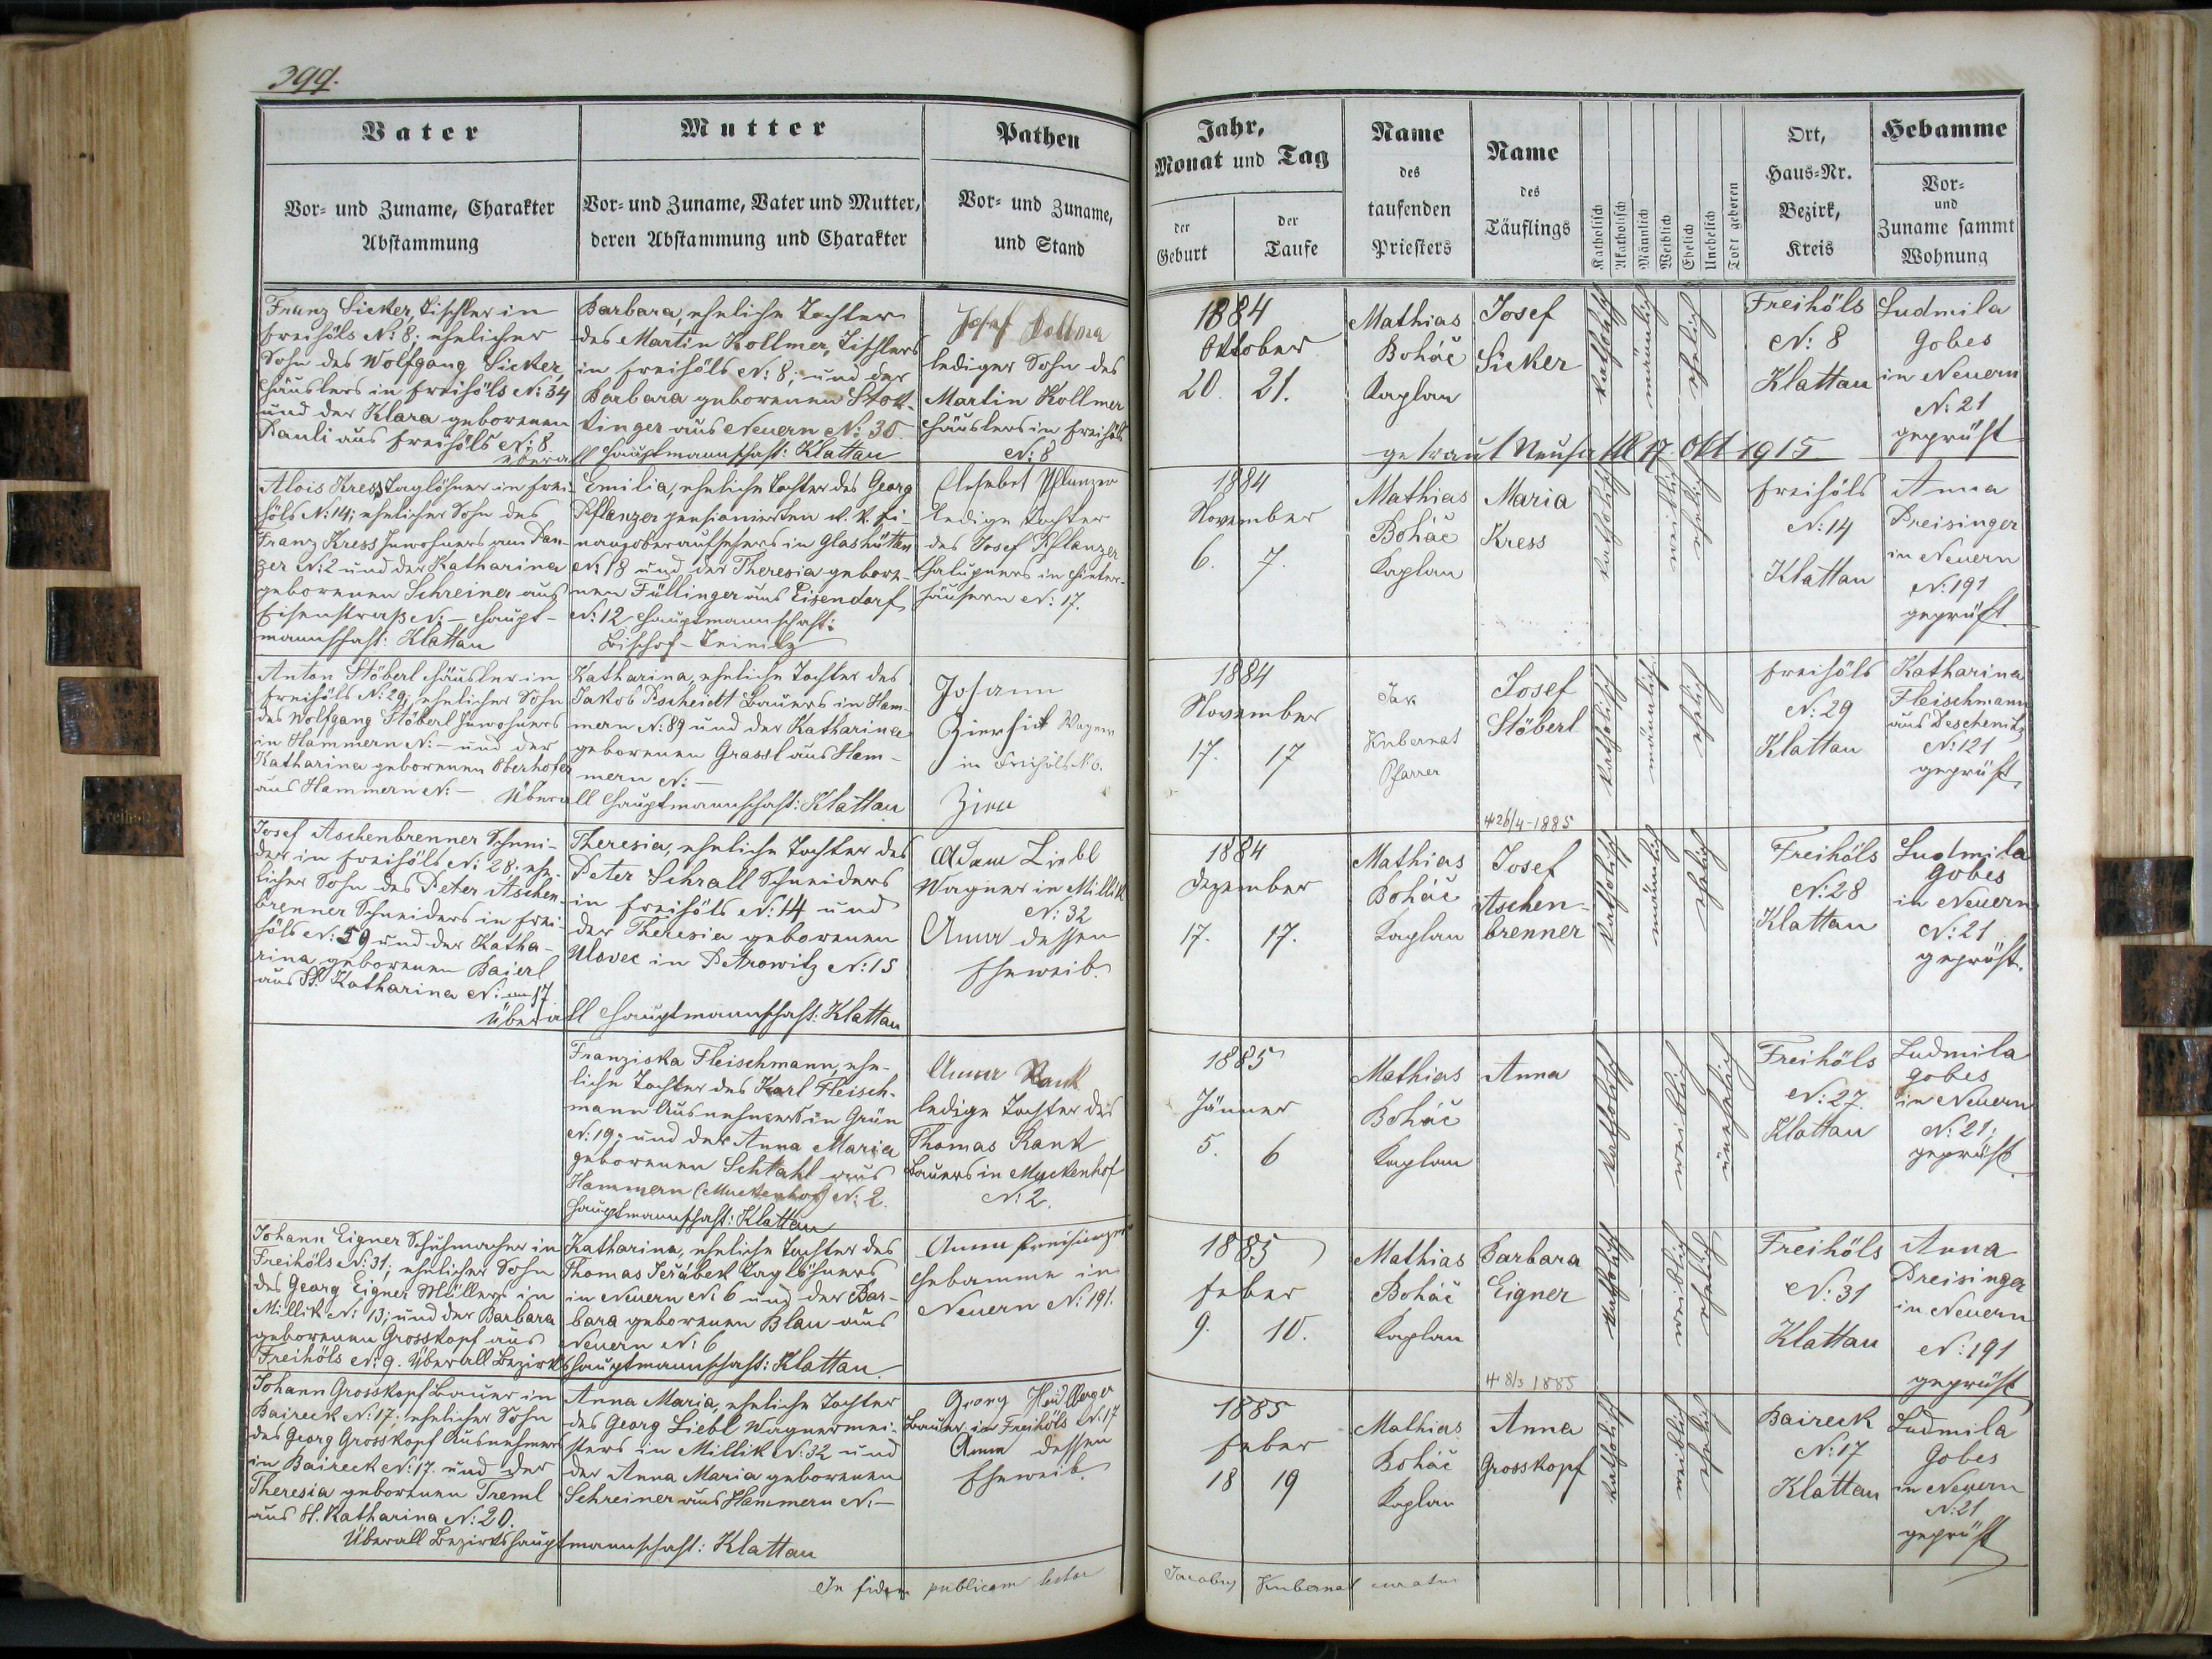 399.
Vater
Vor- und Zuname, Charakter
Abstammung
Mutter
Vor- und Zuname, Vater und Mutter,
deren Abstammung und Charakter
Pathen
Vor- und Zuname,
und Stand
Franz Sicker, Tischler in
Freihöls N: 8; ehelicher
Sohn des Wolfgang Sicker,
Häuslers in Freihöls N: 34
und der Klara geborenen
Pauli aus Freihöls N: 8.
Barbara, eheliche Tochter
des Martin Kollmer, Tischlers
in Freihöls N: 8; und der
Barbara geborenen Stok-
tinger aus Neuern N: 30.
überall Hauptmannschaft: Klattau
Josef Kollma
lediger Sohn des
Martin Kollmer
Häuslers in Freihöls
N: 8
Alois Kress Taglöhner in Frei-
höls N: 14; ehelicher Sohn des
Franz Kress Inwohners am Pan-
zer N: 2 und der Katharina
geborenen Schreiner aus
Eisenstraß N: – Haupt-
mannschaft: Klattau
Emilia, eheliche Tochter des Georg
Pflanzer pensionierten k. k. Fi-
nanzoberaufsehers in Glashütten
N: 18 und der Theresia gebore-
nen Füllinger aus Eisendorf
N: 12 Hauptmannschaft:
Bischof-Teinitz
Elisabet Pflanzer
ledige Tochter
des Josef Pflanzer
Chalupners in Hinter-
häusern N: 17.
Anton Stöberl Häusler in
Freihöls N: 29; ehelicher Sohn
des Wolfgang Stöberl Inwohners
in Hammern N: – und der
Katharina geborenen Oberhofer
aus Hammern N: –
Katharina, eheliche Tochter des
Jakob Pscheidt Bauers in Ham-
mern N: 89 und der Katharina
geborenen Grassl aus Ham-
mern N: –
Überall Hauptmannschaft: Klattau
Johann
Wagner
in Freihöls N: 6.
Josef Aschenbrenner Schnei-
der in Freihöls N: 28; ehe-
licher Sohn des Peter Aschen-
brenner Schneiders in Frei-
höls N: 59 und der Katha-
rina geborenen Baierl
aus St. Katharina N: 17
Theresia, eheliche Tochter des
Peter Schrall Schneiders
in Freihöls N: 14 und
der Theresia geborenen
Ulovec in Petrowitz N: 15
überall Hauptmannschaft: Klattau
Adam Liebl
Wagner in Millik
N: 32
Anna dessen
Eheweib.
Franziska Fleischmann, ehe-
liche Tochter des Karl Fleisch-
mann Ausnehmers in Grün
N: 19; und der Anna Maria
geborenen aus
Hammern (Muckenhof) N: 2.
Hauptmannschaft: Klattau
Anna Rank
ledige Tochter des
Thomas Rank
Bauers in Muckenhof
N: 2.
Johann Eigner Schuhmacher in
Freihöls N: 31; ehelicher Sohn
des Georg Eigner Müllers in
Millik N: 13; und der Barbara
geborenen Grosskopf aus
Freihöls N: 9. Überall Bezirks-
Katharina, eheliche Tochter des
Thomas Jeřábek Taglöhners
in Neuern N: 6 und der Bar-
bara geborenen Blau aus
Neuern N: 6
hauptmannschaft: Klattau.
Anna Preisinger
Hebamme in
Neuern N: 191.
Johann Grosskopf Bauer in
Baireck N: 17; ehelicher Sohn
des Georg Grosskopf Ausnehmers
in Baireck N: 17. und der
Theresia geborenen Treml
aus St. Katharina N: 20.
Anna Maria, eheliche Tochter
des Georg Liebl Wagnermei-
sters in Millik N: 32 und
der Anna Maria geborenen
Schreiner aus Hammern N: –
Überall Bezirkshauptmannschaft: Klattau
Georg
Bauer in Freihöls N: 17
Anna dessen
Eheweib.
In fidem publicam testor
Jahr,
Monat und Tag
der
Geburt
der
Taufe
Name
des
taufenden
Priesters
Name
des
Täuflings
Katholisch
Akatholisch
Männlich
Weiblich
Ehelich
Unehelich
Todt geboren
Ort,
Haus-Nr.
Bezirk,
Kreis
Hebamme
Vor-
und
Zuname sammt
Wohnung
1884
Oktober
20. 21.
Mathias
Boháč
Kaplan
Josef
Sicker
katholisch
männlich
ehelich
Freihöls
N: 8
Klattau
Ludmila
Gobes
in Neuern
N: 21
geprüft
getraut 17. Okt 1915
1884
November
6. 7.
Mathias
Boháč
Kaplan
Maria
Kress
katholisch
weiblich
ehelich
Freihöls
N: 14
Klattau
Anna
Preisinger
in Neuern
N: 191
geprüft.
1884
November
17. 17
Jak
Kubernat
Pfarrer
Josef
Stöberl
26/4-1885
katholisch
männlich
ehelich
Freihöls
N: 29
Klattau
Katharina
Fleischmann
aus Deschenitz
N: 121
geprüft
1884
Dezember
17. 17.
Mathias
Boháč
Kaplan
Josef
Aschen-
brenner
katholisch
männlich
ehelich
Freihöls
N: 28
Klattau
Ludmila
Gobes
in Neuern
N: 21
geprüft.
1885
Jänner
5. 6
Mathias
Boháč
Kaplan
Anna
katholisch
weiblich
unehelich
Freihöls
N: 27.
Klattau
Ludmila
Gobes
in Neuern
N: 21;
geprüft
1885
Feber
9. 10.
Mathias
Boháč
Kaplan
Barbara
Eigner
8/3 1885
katholisch
weiblich
ehelich
Freihöls
N: 31
Klattau
Anna
Preisinger
in Neuern
N: 191
geprüft
1885
Feber
18 19
Mathias
Boháč
Kaplan
Anna
Grosskopf
katholisch
weiblich
ehelich
Baireck
N: 17
Klattau
Ludmila
Gobes
in Neuern
N: 21
geprüft
Jacobus Kubernat curatus